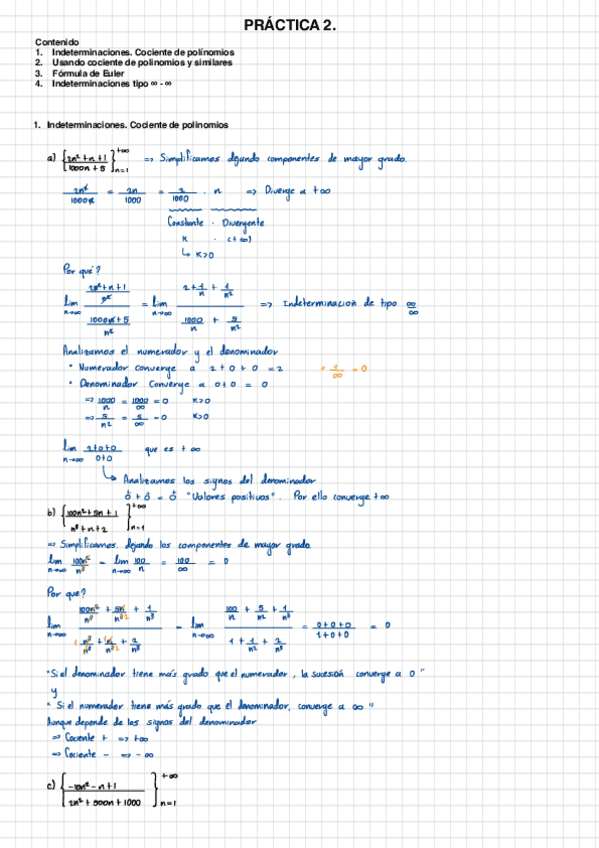 PRÁCTICA 2.
Contenido
1. Indeterminaciones. Cociente de polinomios
2. Usando cociente de polinomios y similares
3. Fórmula de Euler
4. Indeterminaciones tipo ∞ - ∞
1. Indeterminaciones. Cociente de polinomios
a) {(2n² + n + 1)/(1000n + 5)}^{+∞}_{n=1} => Simplificamos dejando componentes de mayor grado.
2n²/1000n = 2n/1000 = 2/1000 · n => Diverge a +∞
Constante · Divergente
K · (+∞)
↳ K>0
Por qué?
lim n→∞ ((2n² + n + 1)/n²)/((1000n + 5)/n²) = lim n→∞ (2 + 1/n + 1/n²)/(1000/n + 5/n²) => Indeterminación de tipo ∞/∞
Analizamos el numerador y el denominador
• Numerador converge a 2 + 0 + 0 = 2 * 1/∞ = 0
• Denominador converge a 0+0 = 0
=> 1000/n = 1000/∞ = 0 K>0
=> 5/n² = 5/∞ = 0 K>0
lim n→∞ (2+0+0)/(0+0) que es +∞
↳ Analizamos los signos del denominador
0 + 0 = 0 "Valores positivos". Por ello converge +∞
b) {(100n² + 5n + 1)/(n³ + n + 2)}^{+∞}_{n=1}
=> Simplificamos. dejando los componentes de mayor grado.
lim n→∞ 100n²/n³ = lim n→∞ 100/n = 100/∞ = 0
Por que?
lim n→∞ (100n²/n³ + 5n/n³ + 1/n³)/(n³/n³ + n/n³ + 2/n³) = lim n→∞ (100/n + 5/n² + 1/n³)/(1 + 1/n² + 2/n³) = (0+0+0)/(1+0+0) = 0
"Si el denominador tiene más grado que el numerador, la sucesión converge a 0"
y
"Si el numerador tiene más grado que el denominador, converge a ∞"
Aunque depende de los signos del denominador
=> Cociente + => +∞
=> Cociente - => -∞
c) {(-10n² - n + 1)/(2n² + 500n + 1000)}^{+∞}_{n=1}